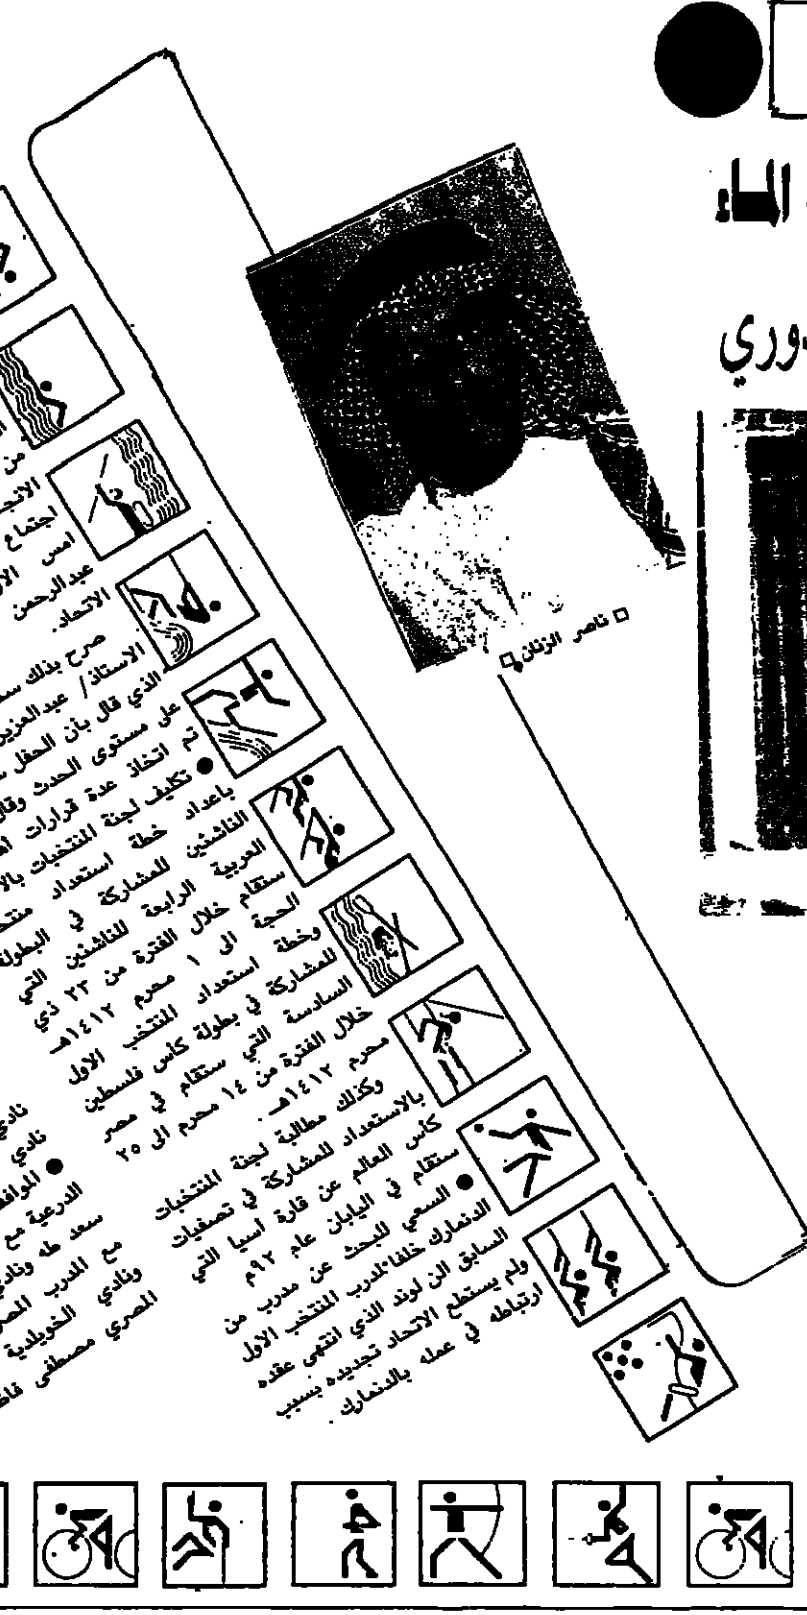 الماء
وري
□ ناصر الزنان □
من
الاتحاد
اجتماع
امس
عبدالرحمن
الاتحاد.
صرح بذلك
الاستاذ/ عبدالعزيز
الذي قال بأن الحفل
على مستوى الحدث وقال
تم اتخاذ عدة قرارات
● تكليف لجنة المنتخبات
باعداد خطة استعداد
الناشئين للمشاركة في البطولة
العربية الرابعة للناشئين التي
ستقام خلال الفترة من ٢٣ ذي
الحجة الى ١ محرم ١٤١٢هـ
وخطة استعداد المنتخب الاول
للمشاركة في بطولة كأس فلسطين
السادسة التي ستقام في مصر
خلال الفترة من ١٤ محرم الى ٢٥
محرم ١٤١٢هـ.
وكذلك مطالبة لجنة المنتخبات
بالاستعداد للمشاركة في تصفيات
كأس العالم عن قارة آسيا التي
ستقام في اليابان عام ٩٢م
● السعي للبحث عن مدرب من
الدنمارك خلفا لمدرب المنتخب الاول
السابق الن لوند الذي انتهى عقده
ولم يستطع الاتحاد تجديده بسبب
ارتباطه في عمله بالدنمارك.
نادي
نادي
●
الدرعية مع
سعد طه ونادي
مع المدرب
ونادي الخويلدية
المصري مصطفى